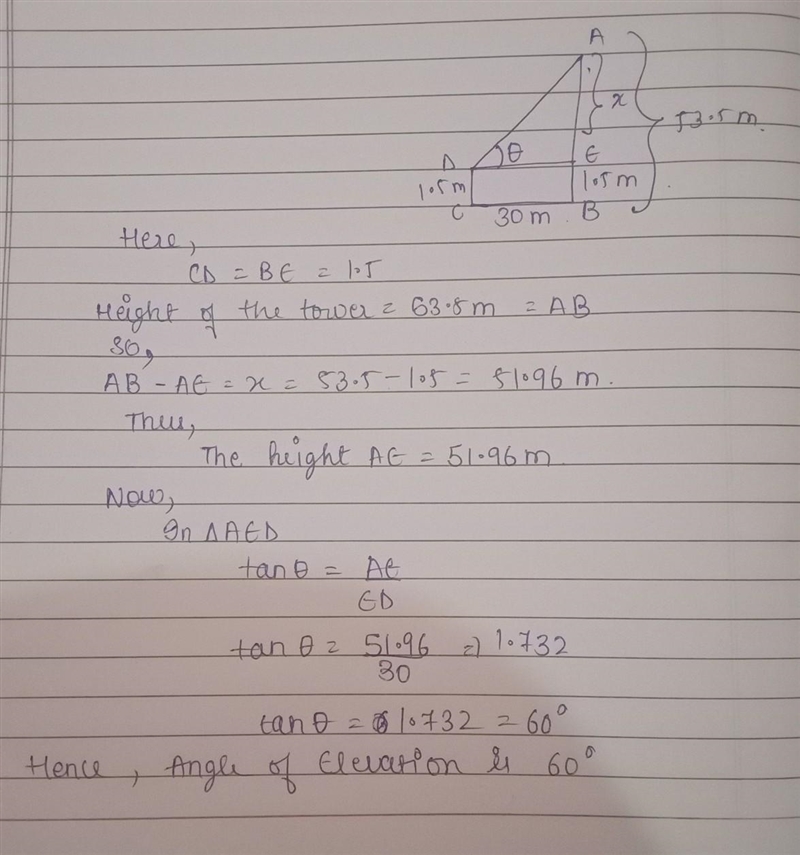 A
x
53.5 m.
D θ E
1.5 m 1.5 m
C 30 m . B
Here,
CD = BE = 1.5
Height of the tower = 63.5 m = AB
so,
AB - AE = x = 53.5 - 1.5 = 51.96 m.
Thus,
The height AE = 51.96 m
Now,
In ΔAED
tan θ = AE
ED
tan θ = 51.96 => 1.732
30
tan θ = 1.732 = 60°
Hence, Angle of Elevation is 60°